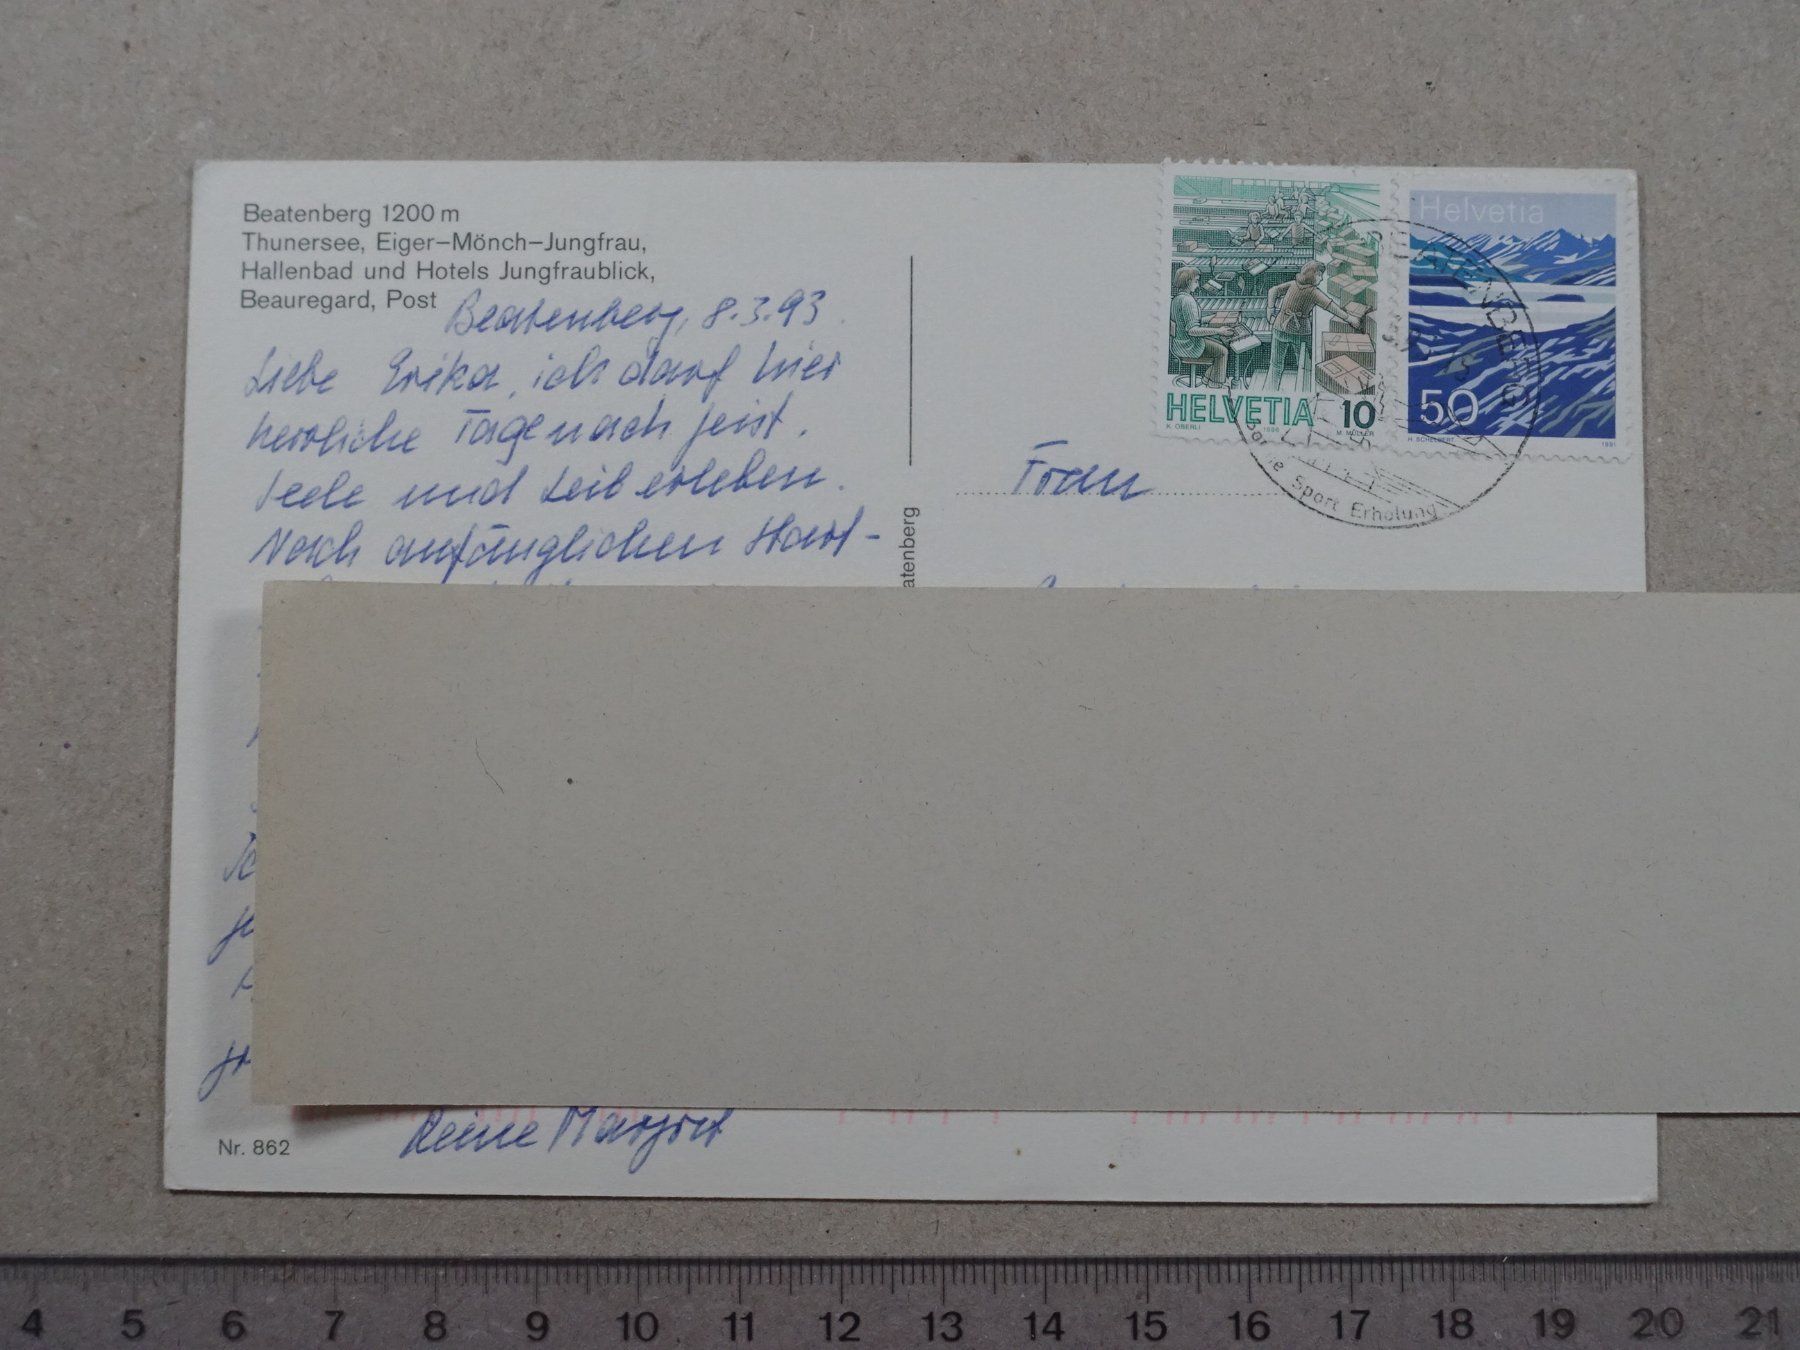 Beatenberg 1200 m
Thunersee, Eiger–Mönch–Jungfrau,
Hallenbad und Hotels Jungfraublick,
Beauregard, Post
Beatenberg, 8.3.93.
Liebe Erika, ich darf hier
herrliche Tage nach Geist,
Seele und Leib erleben.
Nach anfänglichen Hart-
Deine Margrit
Nr. 862
atenberg
HELVETIA 10
K. OBERLI 1986 M. MÜLLER
Helvetia
50
H. SCHELBERT 1991
BEATENBERG
Sport Erholung
Frau
4 5 6 7 8 9 10 11 12 13 14 15 16 17 18 19 20 21